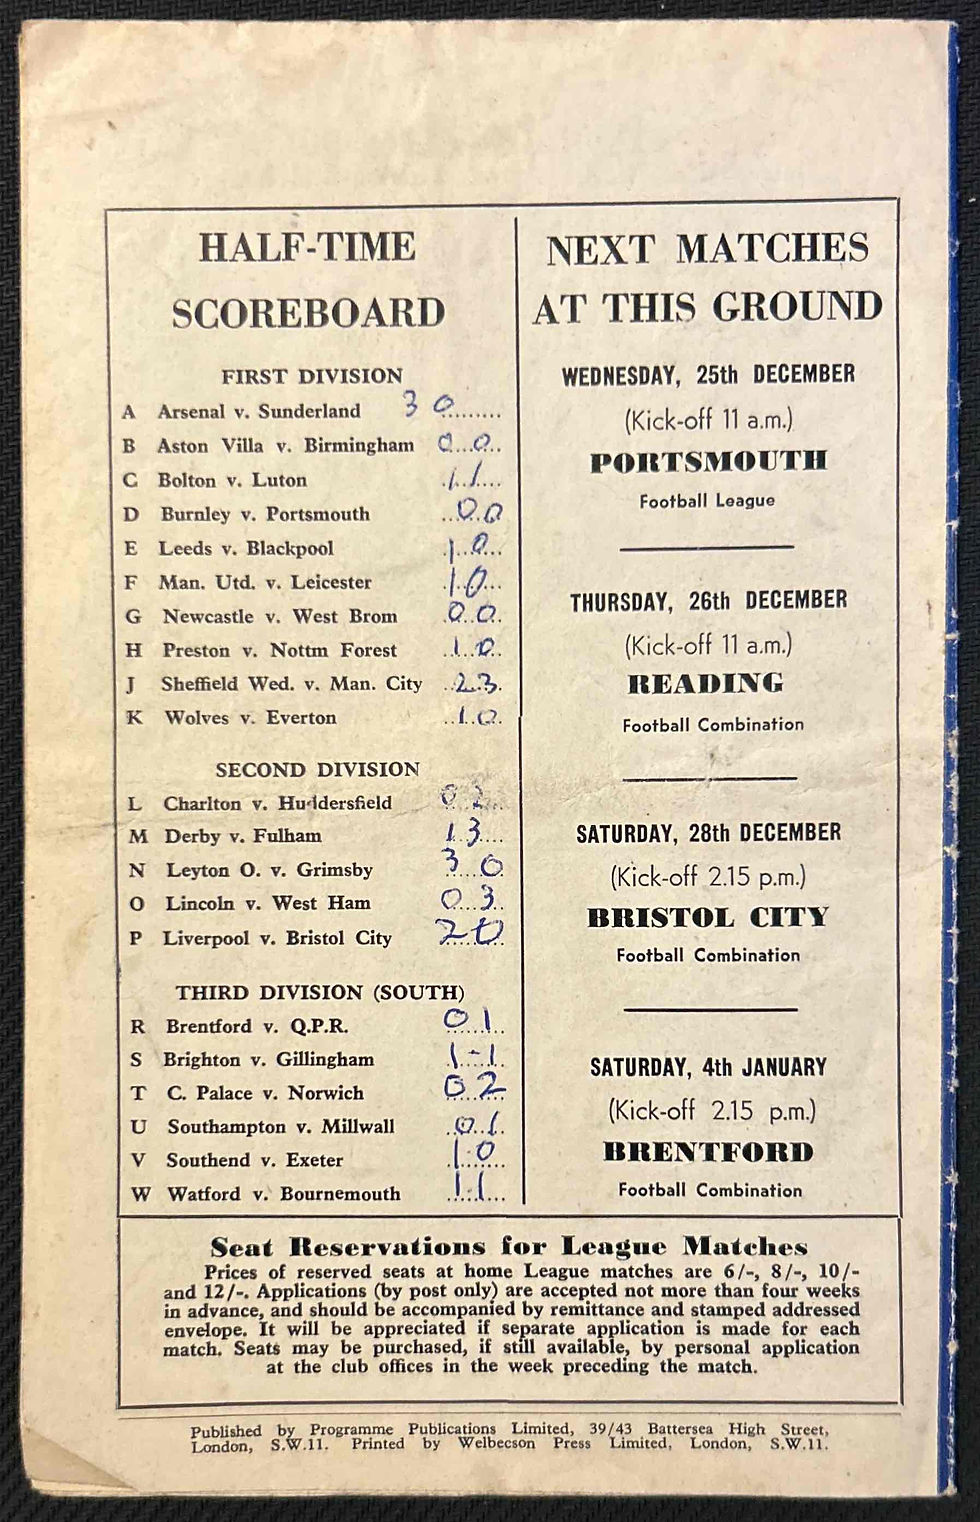 HALF-TIME
SCOREBOARD
FIRST DIVISION
A Arsenal v. Sunderland 3 0
B Aston Villa v. Birmingham 0 0
C Bolton v. Luton 1 1
D Burnley v. Portsmouth 0 0
E Leeds v. Blackpool 1 0
F Man. Utd. v. Leicester 1 0
G Newcastle v. West Brom 0 0
H Preston v. Nottm Forest 1 0
J Sheffield Wed. v. Man. City 2 3
K Wolves v. Everton 1 0
SECOND DIVISION
L Charlton v. Huddersfield 0 2
M Derby v. Fulham 1 3
N Leyton O. v. Grimsby 3 0
O Lincoln v. West Ham 0 3
P Liverpool v. Bristol City 2 0
THIRD DIVISION (SOUTH)
R Brentford v. Q.P.R. 0 1
S Brighton v. Gillingham 1-1
T C. Palace v. Norwich 0 2
U Southampton v. Millwall 0 1
V Southend v. Exeter 1 0
W Watford v. Bournemouth 1 1
NEXT MATCHES
AT THIS GROUND
WEDNESDAY, 25th DECEMBER
(Kick-off 11 a.m.)
PORTSMOUTH
Football League
THURSDAY, 26th DECEMBER
(Kick-off 11 a.m.)
READING
Football Combination
SATURDAY, 28th DECEMBER
(Kick-off 2.15 p.m.)
BRISTOL CITY
Football Combination
SATURDAY, 4th JANUARY
(Kick-off 2.15 p.m.)
BRENTFORD
Football Combination
Seat Reservations for League Matches
Prices of reserved seats at home League matches are 6/-, 8/-, 10/-
and 12/-. Applications (by post only) are accepted not more than four weeks
in advance, and should be accompanied by remittance and stamped addressed
envelope. It will be appreciated if separate application is made for each
match. Seats may be purchased, if still available, by personal application
at the club offices in the week preceding the match.
Published by Programme Publications Limited, 39/43 Battersea High Street,
London, S.W.11. Printed by Welbecson Press Limited, London, S.W.11.